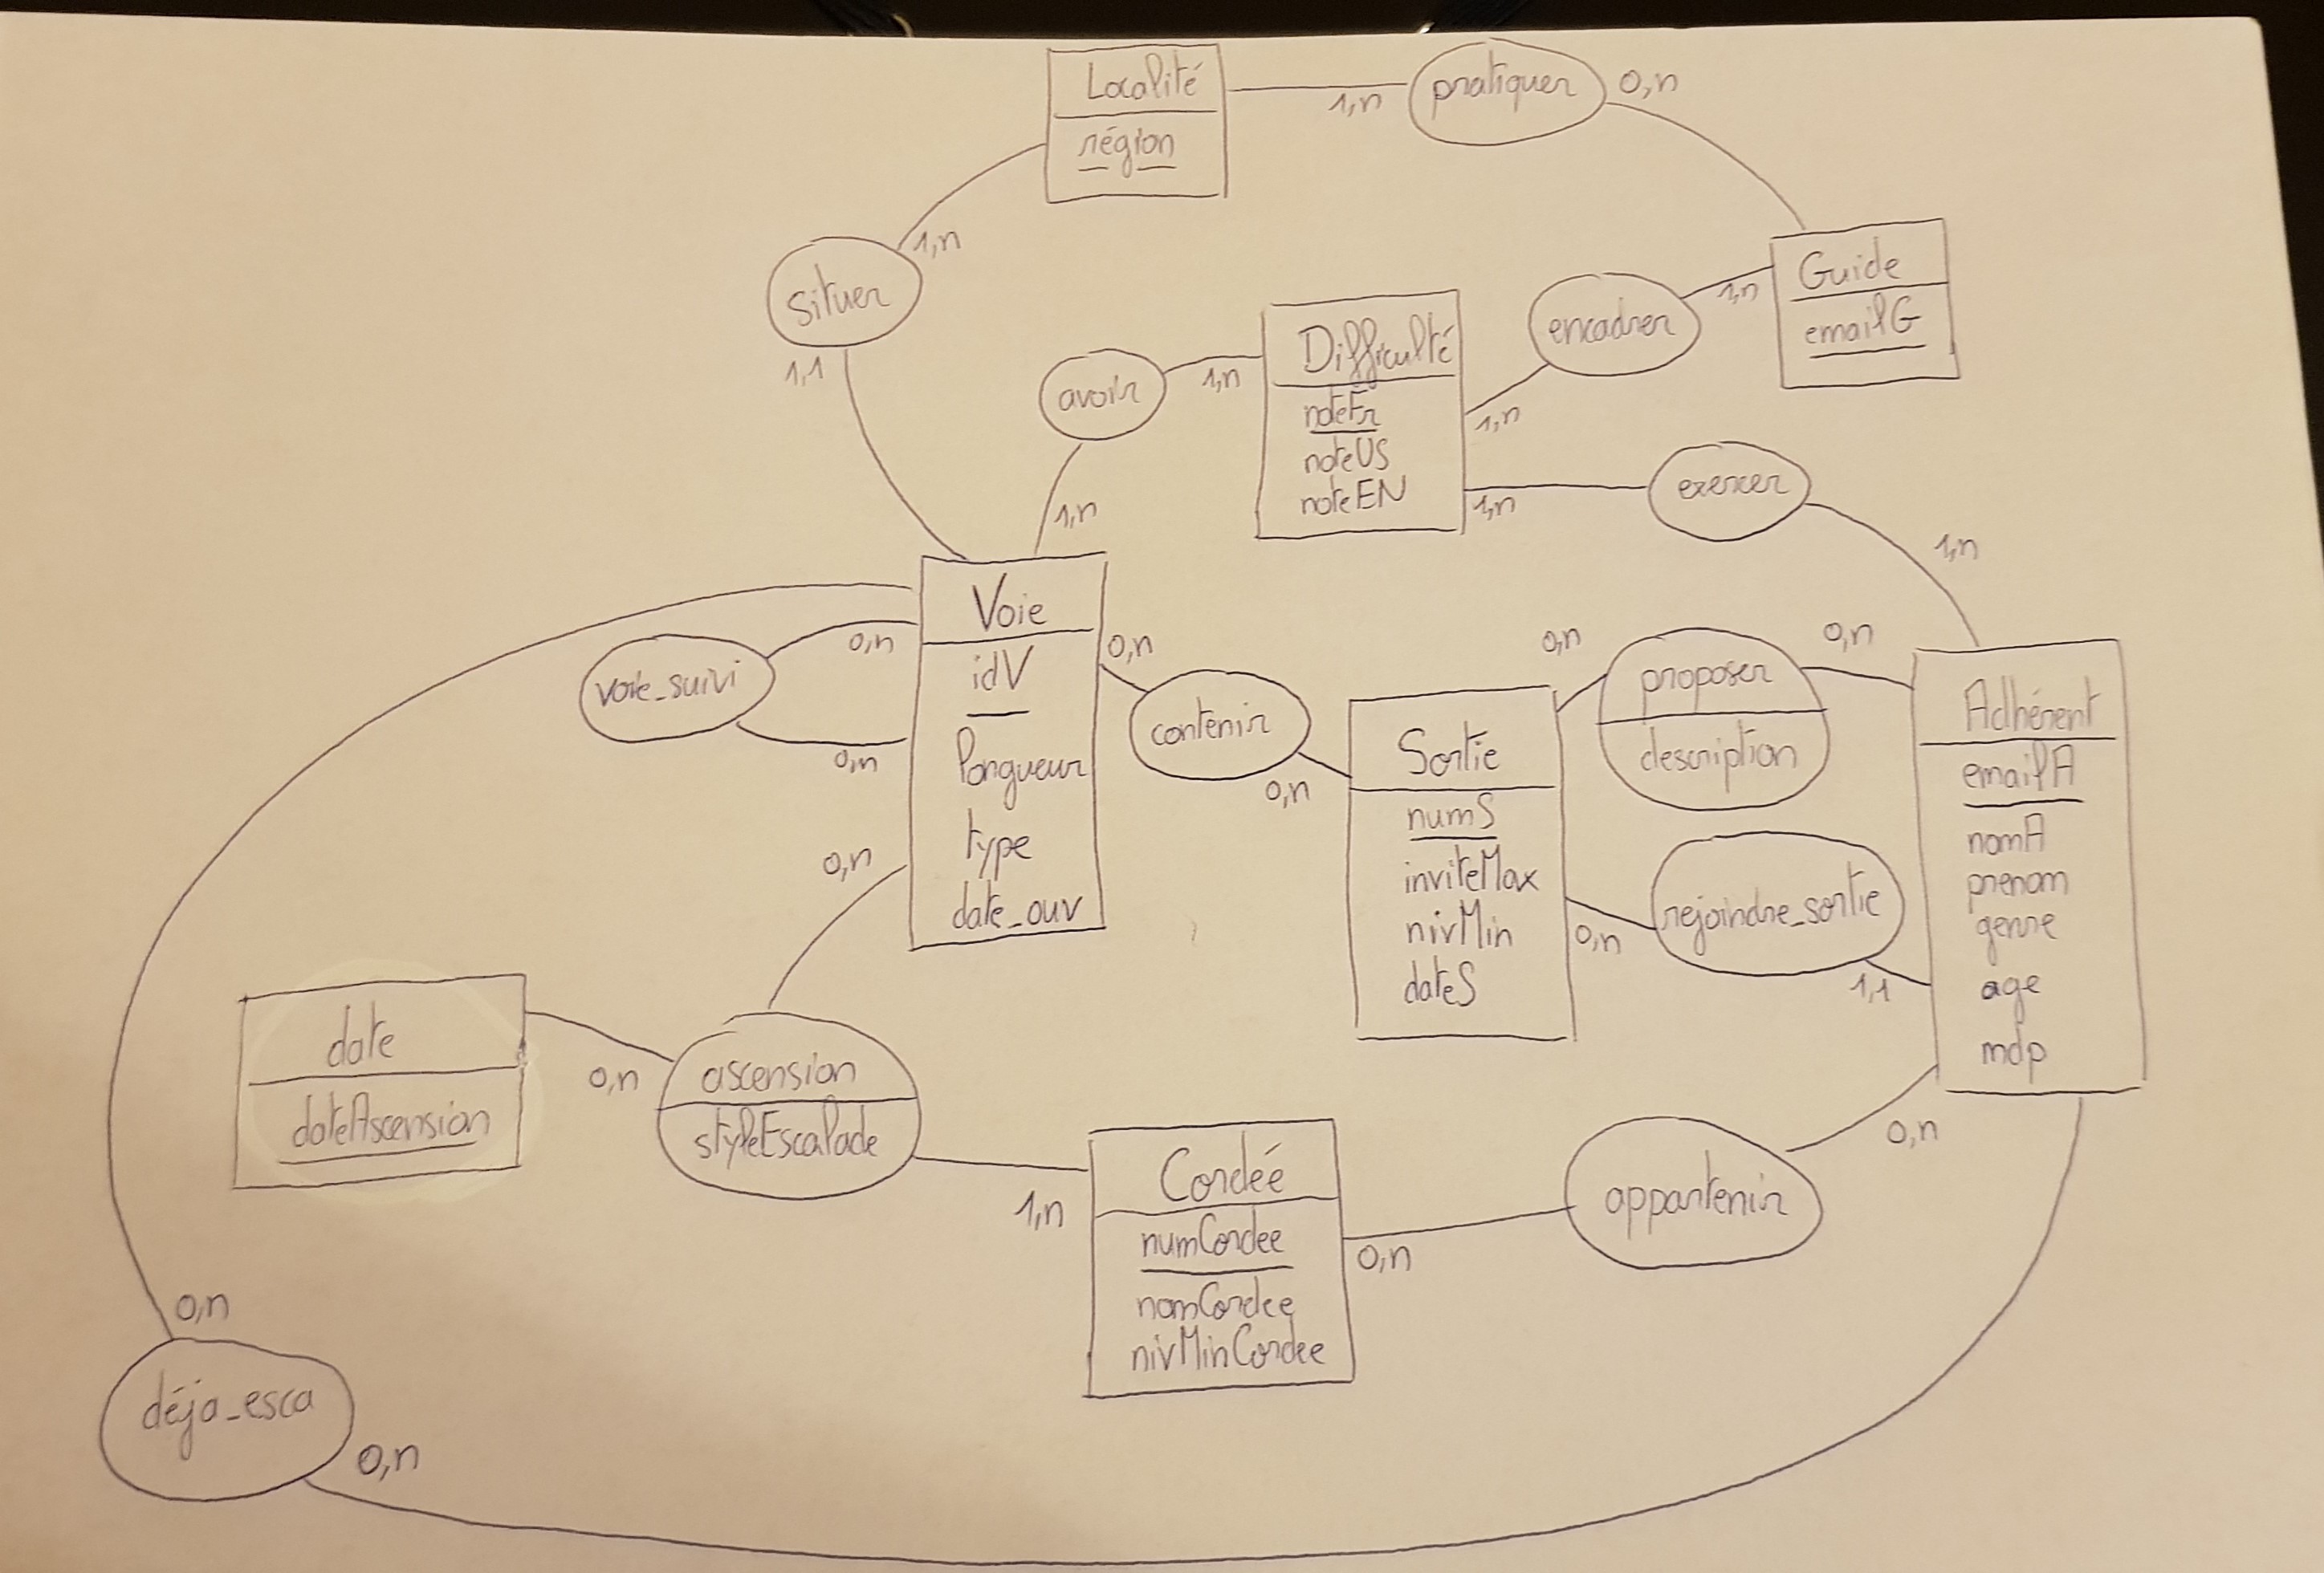 Localité
région
1,n
pratiquer
0,n
1,n
situer
1,1
Guide
emailG
1,n
encadrer
1,n
Difficulté
noteFr
noteUS
noteEN
1,n
avoir
1,n
1,n
exercer
1,n
Voie
idV
longueur
type
date_ouv
0,n
voie_suivi
0,n
0,n
contenir
0,n
Sortie
numS
inviteMax
nivMin
dateS
0,n
proposer
description
0,n
Adhérent
emailA
nomA
prenom
genre
age
mdp
0,n
rejoindre_sortie
1,1
0,n
date
dateAscension
0,n
ascension
styleEscalade
1,n
Cordée
numCordee
nomCordee
nivMinCordee
0,n
appartenir
0,n
0,n
déja_esca
0,n